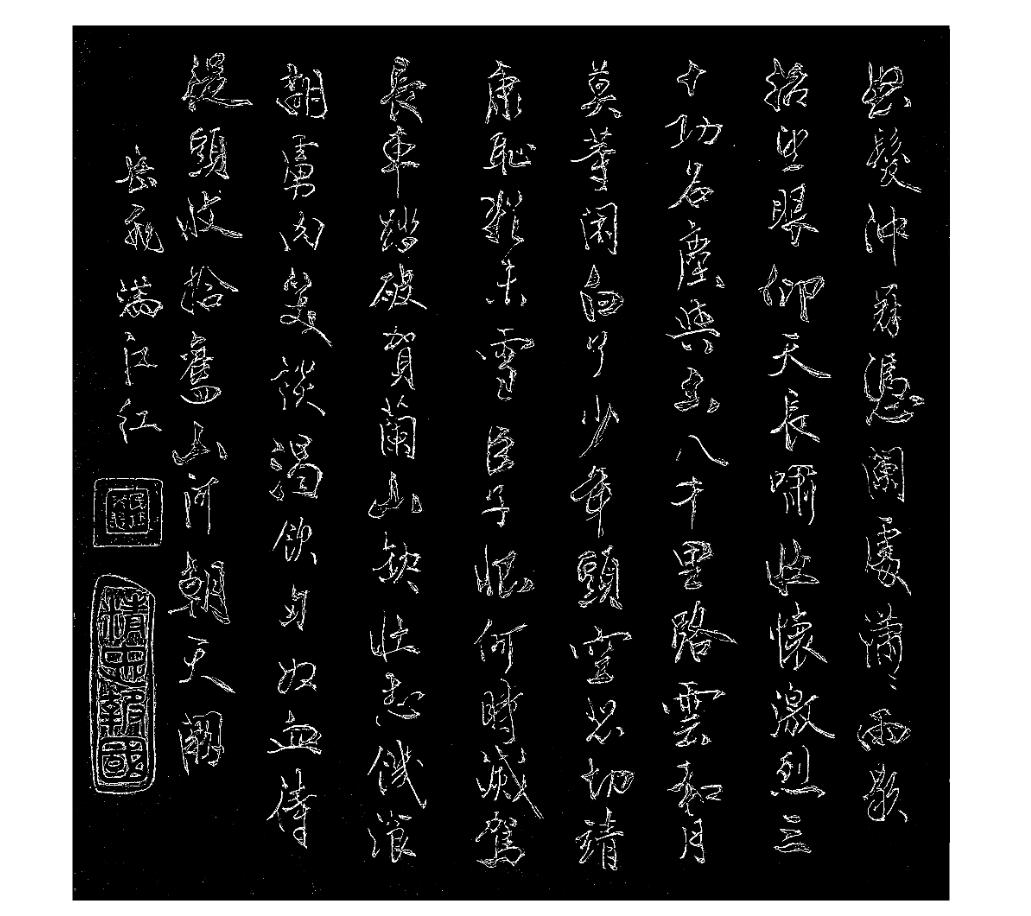 怒髮沖冠憑闌處瀟〻雨歇
抬望眼仰天長嘯壯懷激烈三
十功名塵與土八千里路雲和月
莫等閑白了少年頭空悲切靖
康恥猶未雪臣子恨何時滅駕
長車踏破賀蘭山缺壯志飢飡
胡虜肉笑談渴飲匈奴血待
從頭收拾舊山河朝天闕
岳飛滿江紅
精忠報國